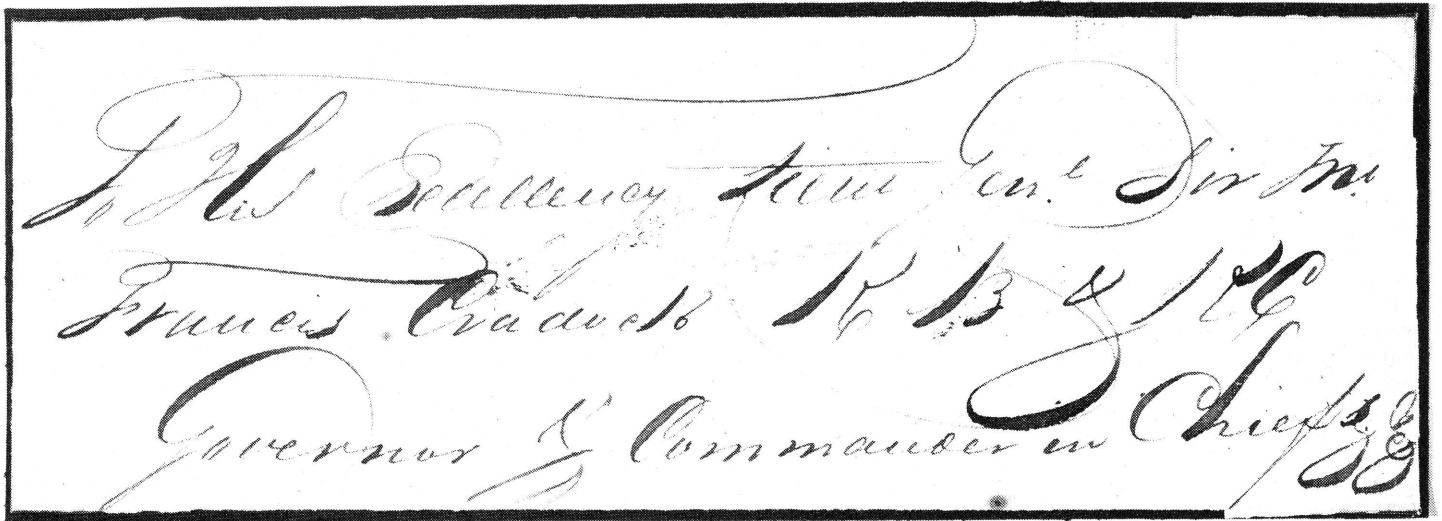 To His Excellency Lieut Gen.l Sir Jno.
Francis Cradock K B & K C
Governor & Commander in Chief &c &c